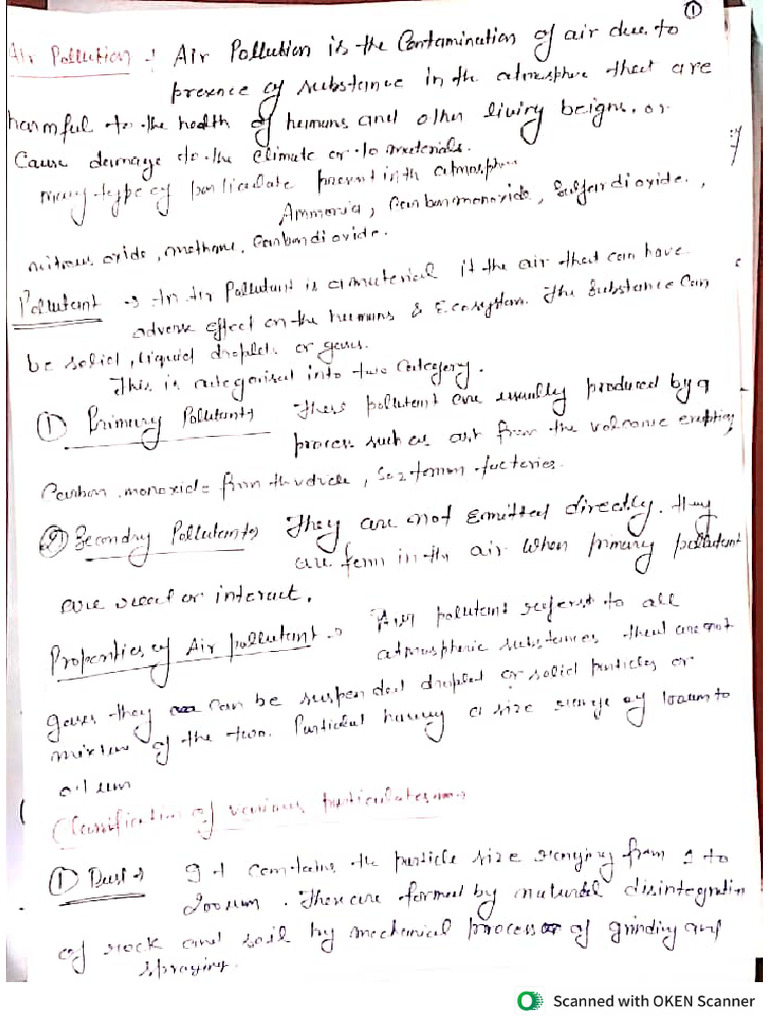 ①
Air Pollution → Air Pollution is the Contamination of air due to
presence of substance in the atmosphere that are
harmful to the health of humans and other living beigns. or
Cause damage to the climate or to materials.
many type of particulate present in the atmosphere
Ammonia, Carbon monoxide, Sulfur dioxide,
nitrous oxide, methane, Carbon dioxide.
Pollutant → An Air Pollutant is a material it the air that can have
adverse effect on the humans & Ecosystem. The Substance Can
be solid, liquid droplets or gases.
This is categorised into two Category.
① Primary Pollutant→ These pollutant are usually produced by a
process such as ash from the volcanic eruption,
Carbon monoxide from the vehicle, So2 factories.
② Secondry Pollutant→ They are not Emitted directly. they
are form in the air when primary pollutant
are react or interact.
Properties of Air pollutant → Air pollutant referst to all
atmospheric substances that are not
gases they can be suspended droplet or solid particles or
mixture of the two. Particul having a size range of 100um to
0.1um
Classification of various particulates
① Dust → It contains the particle size ranging from 1 to
200um. These are formed by natural disintegration
of rock and soil by mechanical process of grinding and
spraying.
Scanned with OKEN Scanner